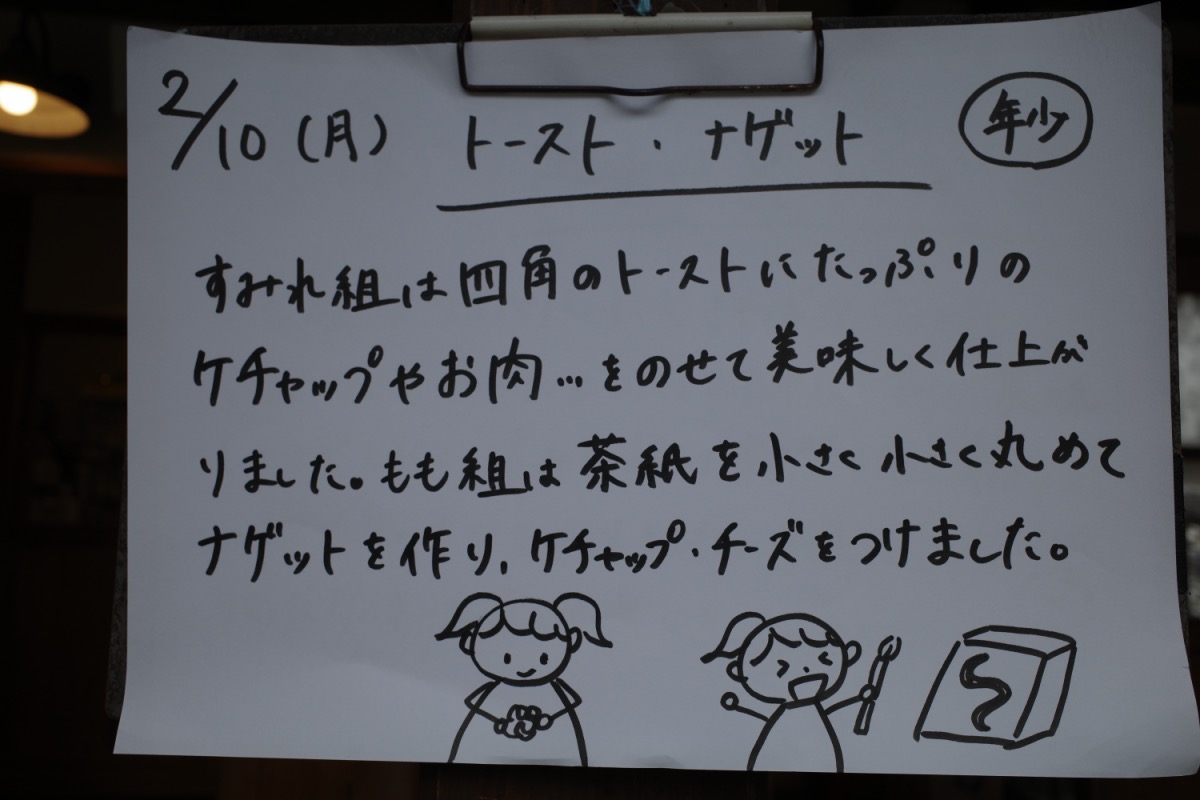 2/10(月) トースト・ナゲット 年少
すみれ組は四角のトーストにたっぷりの
ケチャップやお肉…をのせて美味しく仕上が
りました。もも組は茶紙を小さく小さく丸めて
ナゲットを作り、ケチャップ・チーズをつけました。